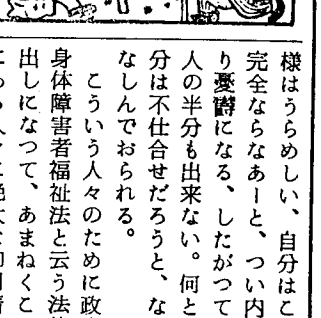 様はうらめしい、自分はこ
完全ならなあーと、つい内
り憂欝になる、したがつて
人の半分も出来ない。何と
分は不仕合せだろうと、な
なしんでおられる。
こういう人々のために政
身体障害者福祉法と云う法
出しになつて、あまねくこ